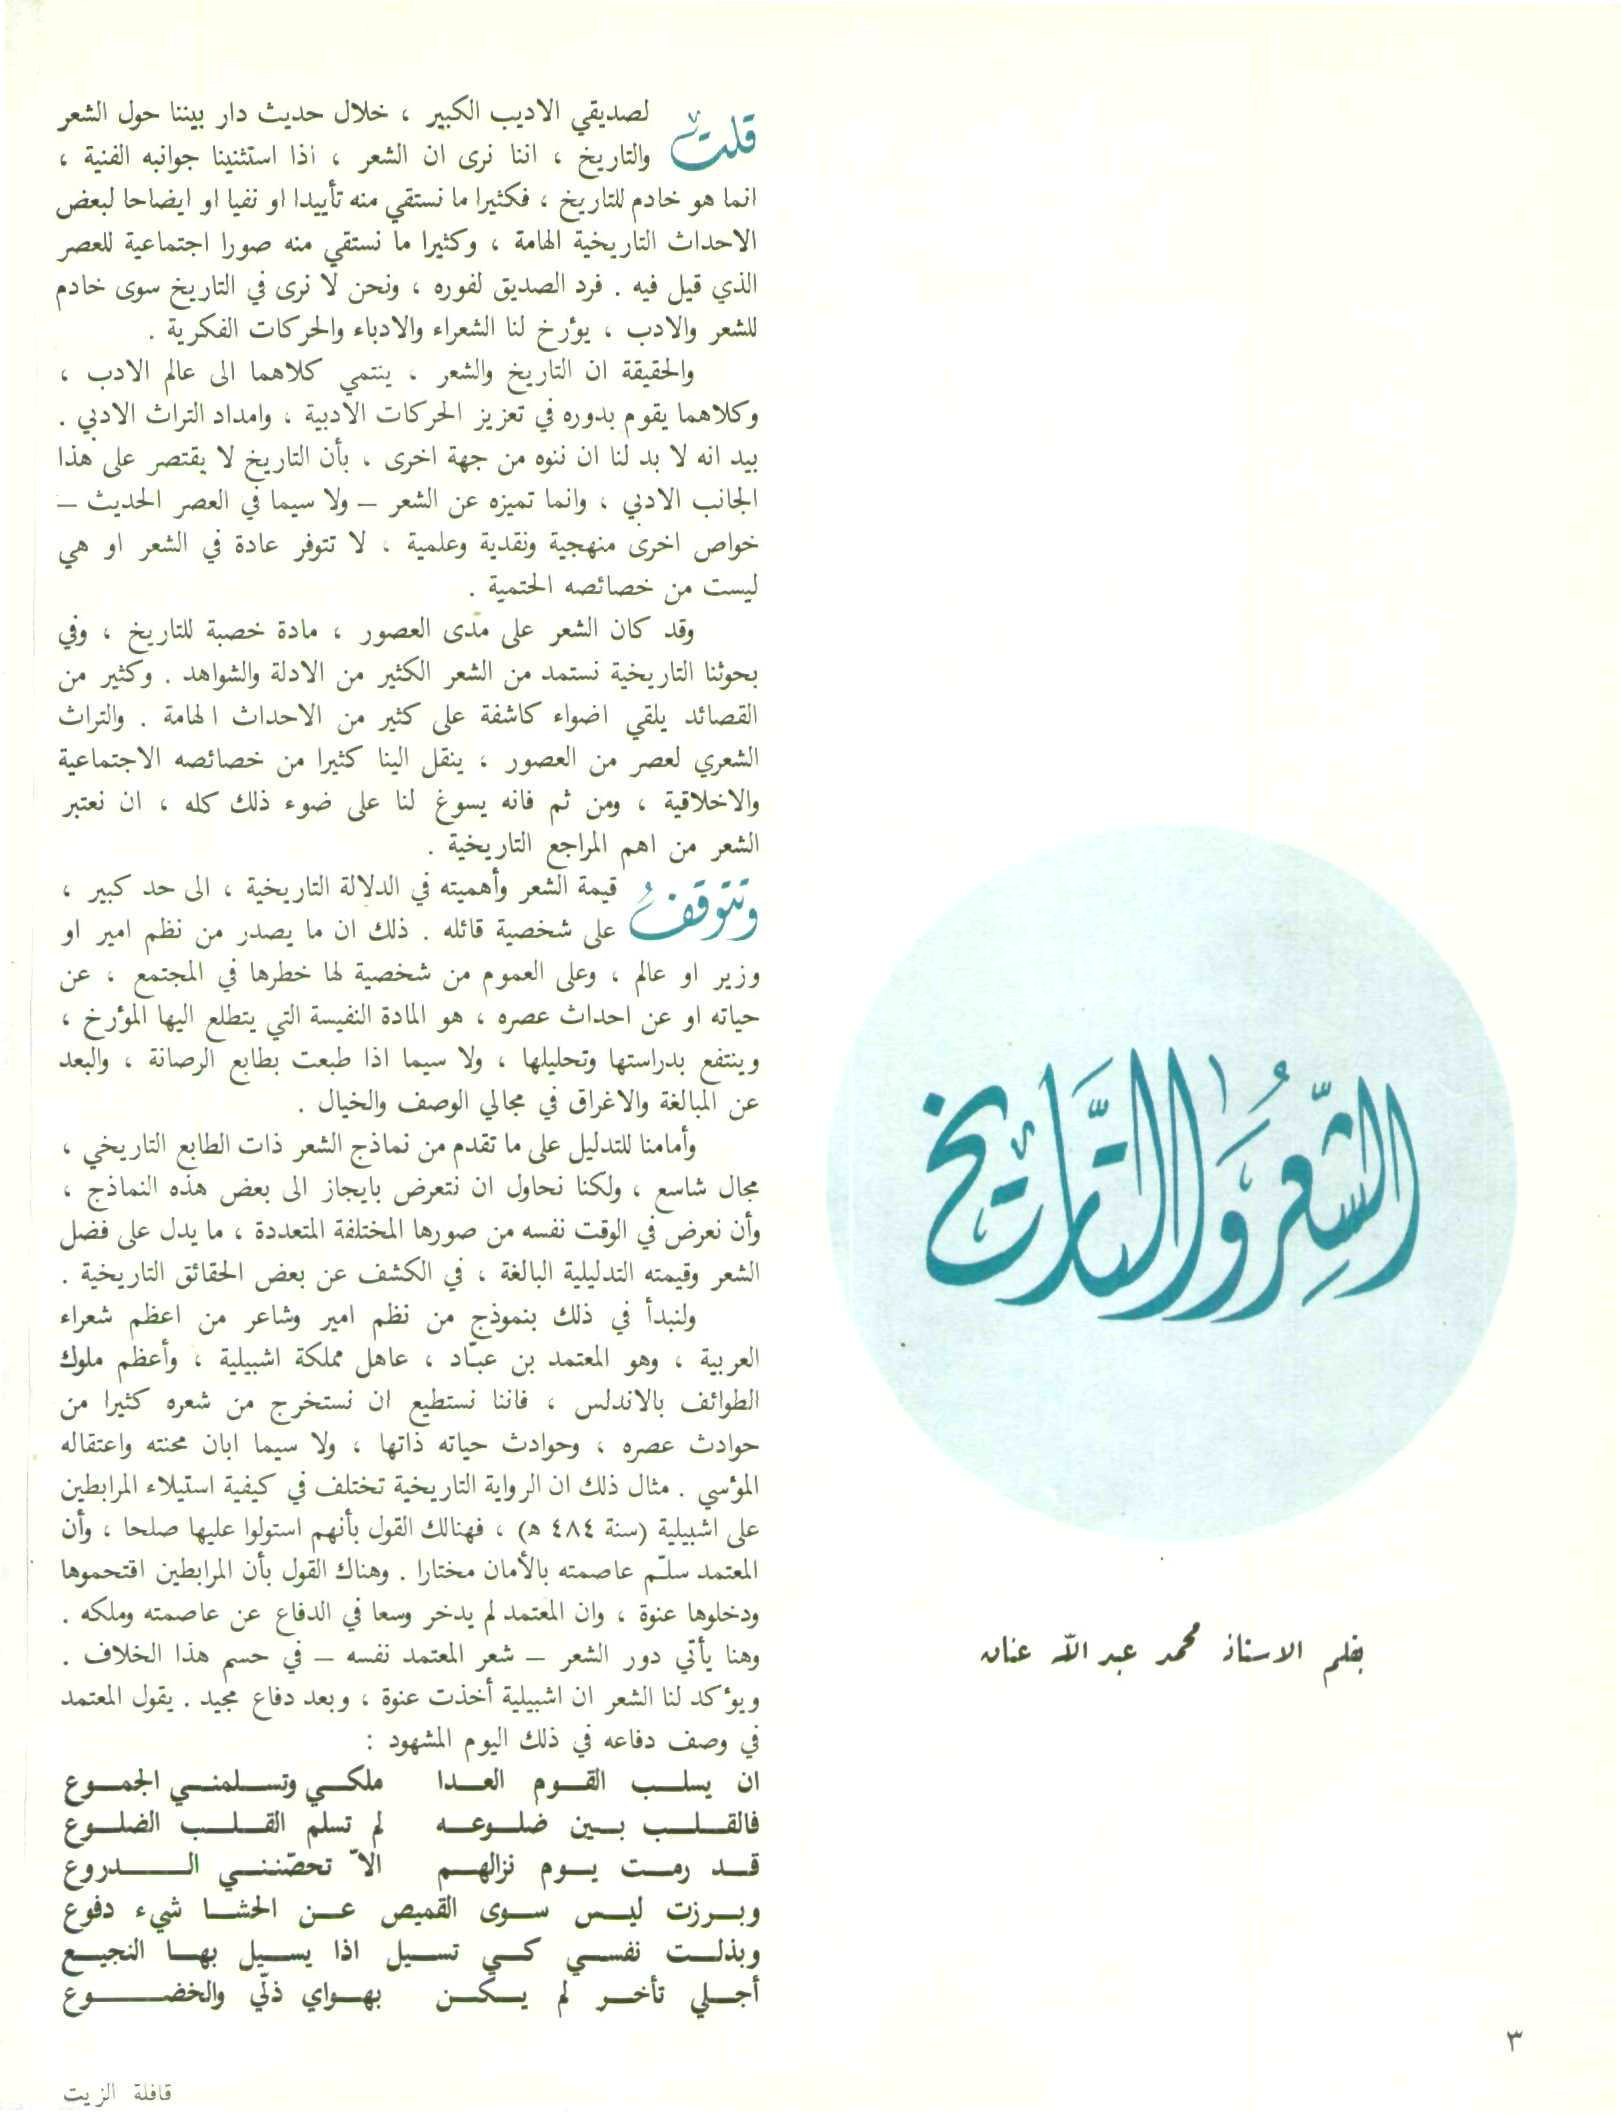 الشِّعرُ والتَّاريخ
بقلم الاستاذ محمد عبد الله عنان
قلتُ لصديقي الاديب الكبير ، خلال حديث دار بيننا حول الشعر
والتاريخ ، اننا نرى ان الشعر ، اذا استثنينا جوانبه الفنية ،
انما هو خادم للتاريخ ، فكثيرا ما نستقي منه تأييدا او نفيا او ايضاحا لبعض
الاحداث التاريخية الهامة ، وكثيرا ما نستقي منه صورا اجتماعية للعصر
الذي قيل فيه . فرد الصديق لفوره ، ونحن لا نرى في التاريخ سوى خادم
للشعر والادب ، يؤرخ لنا الشعراء والادباء والحركات الفكرية .
والحقيقة ان التاريخ والشعر ، ينتمي كلاهما الى عالم الادب ،
وكلاهما يقوم بدوره في تعزيز الحركات الادبية ، وامداد التراث الادبي .
بيد انه لا بد لنا ان ننوه من جهة اخرى ، بأن التاريخ لا يقتصر على هذا
الجانب الادبي ، وانما تميزه عن الشعر – ولا سيما في العصر الحديث –
خواص اخرى منهجية ونقدية وعلمية ، لا تتوفر عادة في الشعر او هي
ليست من خصائصه الحتمية .
وقد كان الشعر على مدى العصور ، مادة خصبة للتاريخ ، وفي
بحوثنا التاريخية نستمد من الشعر الكثير من الادلة والشواهد . وكثير من
القصائد يلقي اضواء كاشفة على كثير من الاحداث الهامة . والتراث
الشعري لعصر من العصور ، ينقل الينا كثيرا من خصائصه الاجتماعية
والاخلاقية ، ومن ثم فانه يسوغ لنا على ضوء ذلك كله ، ان نعتبر
الشعر من اهم المراجع التاريخية .
وتتوقفُ قيمة الشعر وأهميته في الدلالة التاريخية ، الى حد كبير ،
على شخصية قائله . ذلك ان ما يصدر من نظم امير او
وزير او عالم ، وعلى العموم من شخصية لها خطرها في المجتمع ، عن
حياته او عن احداث عصره ، هو المادة النفيسة التي يتطلع اليها المؤرخ ،
وينتفع بدراستها وتحليلها ، ولا سيما اذا طبعت بطابع الرصانة ، والبعد
عن المبالغة والاغراق في مجالي الوصف والخيال .
وأمامنا للتدليل على ما تقدم من نماذج الشعر ذات الطابع التاريخي ،
مجال شاسع ، ولكنا نحاول ان نتعرض بايجاز الى بعض هذه النماذج ،
وأن نعرض في الوقت نفسه من صورها المختلفة المتعددة ، ما يدل على فضل
الشعر وقيمته التدليلية البالغة ، في الكشف عن بعض الحقائق التاريخية .
ولنبدأ في ذلك بنموذج من نظم امير وشاعر من اعظم شعراء
العربية ، وهو المعتمد بن عبّاد ، عاهل مملكة اشبيلية ، وأعظم ملوك
الطوائف بالاندلس ، فاننا نستطيع ان نستخرج من شعره كثيرا من
حوادث عصره ، وحوادث حياته ذاتها ، ولا سيما ابان محنته واعتقاله
المؤسي . مثال ذلك ان الرواية التاريخية تختلف في كيفية استيلاء المرابطين
على اشبيلية (سنة ٤٨٤ ه) ، فهنالك القول بأنهم استولوا عليها صلحا ، وأن
المعتمد سلّم عاصمته بالأمان مختارا . وهناك القول بأن المرابطين اقتحموها
ودخلوها عنوة ، وان المعتمد لم يدخر وسعا في الدفاع عن عاصمته وملكه .
وهنا يأتي دور الشعر – شعر المعتمد نفسه – في حسم هذا الخلاف .
ويؤكد لنا الشعر ان اشبيلية أخذت عنوة ، وبعد دفاع مجيد . يقول المعتمد
في وصف دفاعه في ذلك اليوم المشهود :
ان يسلب القوم العدا ملكي وتسلمني الجموع
فالقلب بين ضلوعه لم تسلم القلب الضلوع
قد رمت يوم نزالهم الاّ تحصّنني الدروع
وبرزت ليس سوى القميص عن الحشا شيء دفوع
وبذلت نفسي كي تسيل اذا يسيل بها النجيع
أجلي تأخر لم يكن بهواي ذلّي والخضوع
٣
قافلة الزيت